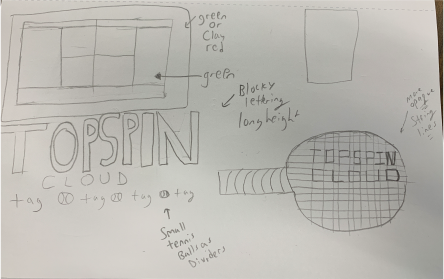 green
or
Clay
red
green
Blocky
lettering
long height
TOPSPIN
CLOUD
tag tag tag tag
Small
tennis
Balls as
Dividers
more opaque
string
lines
TOPSPIN
CLOUD